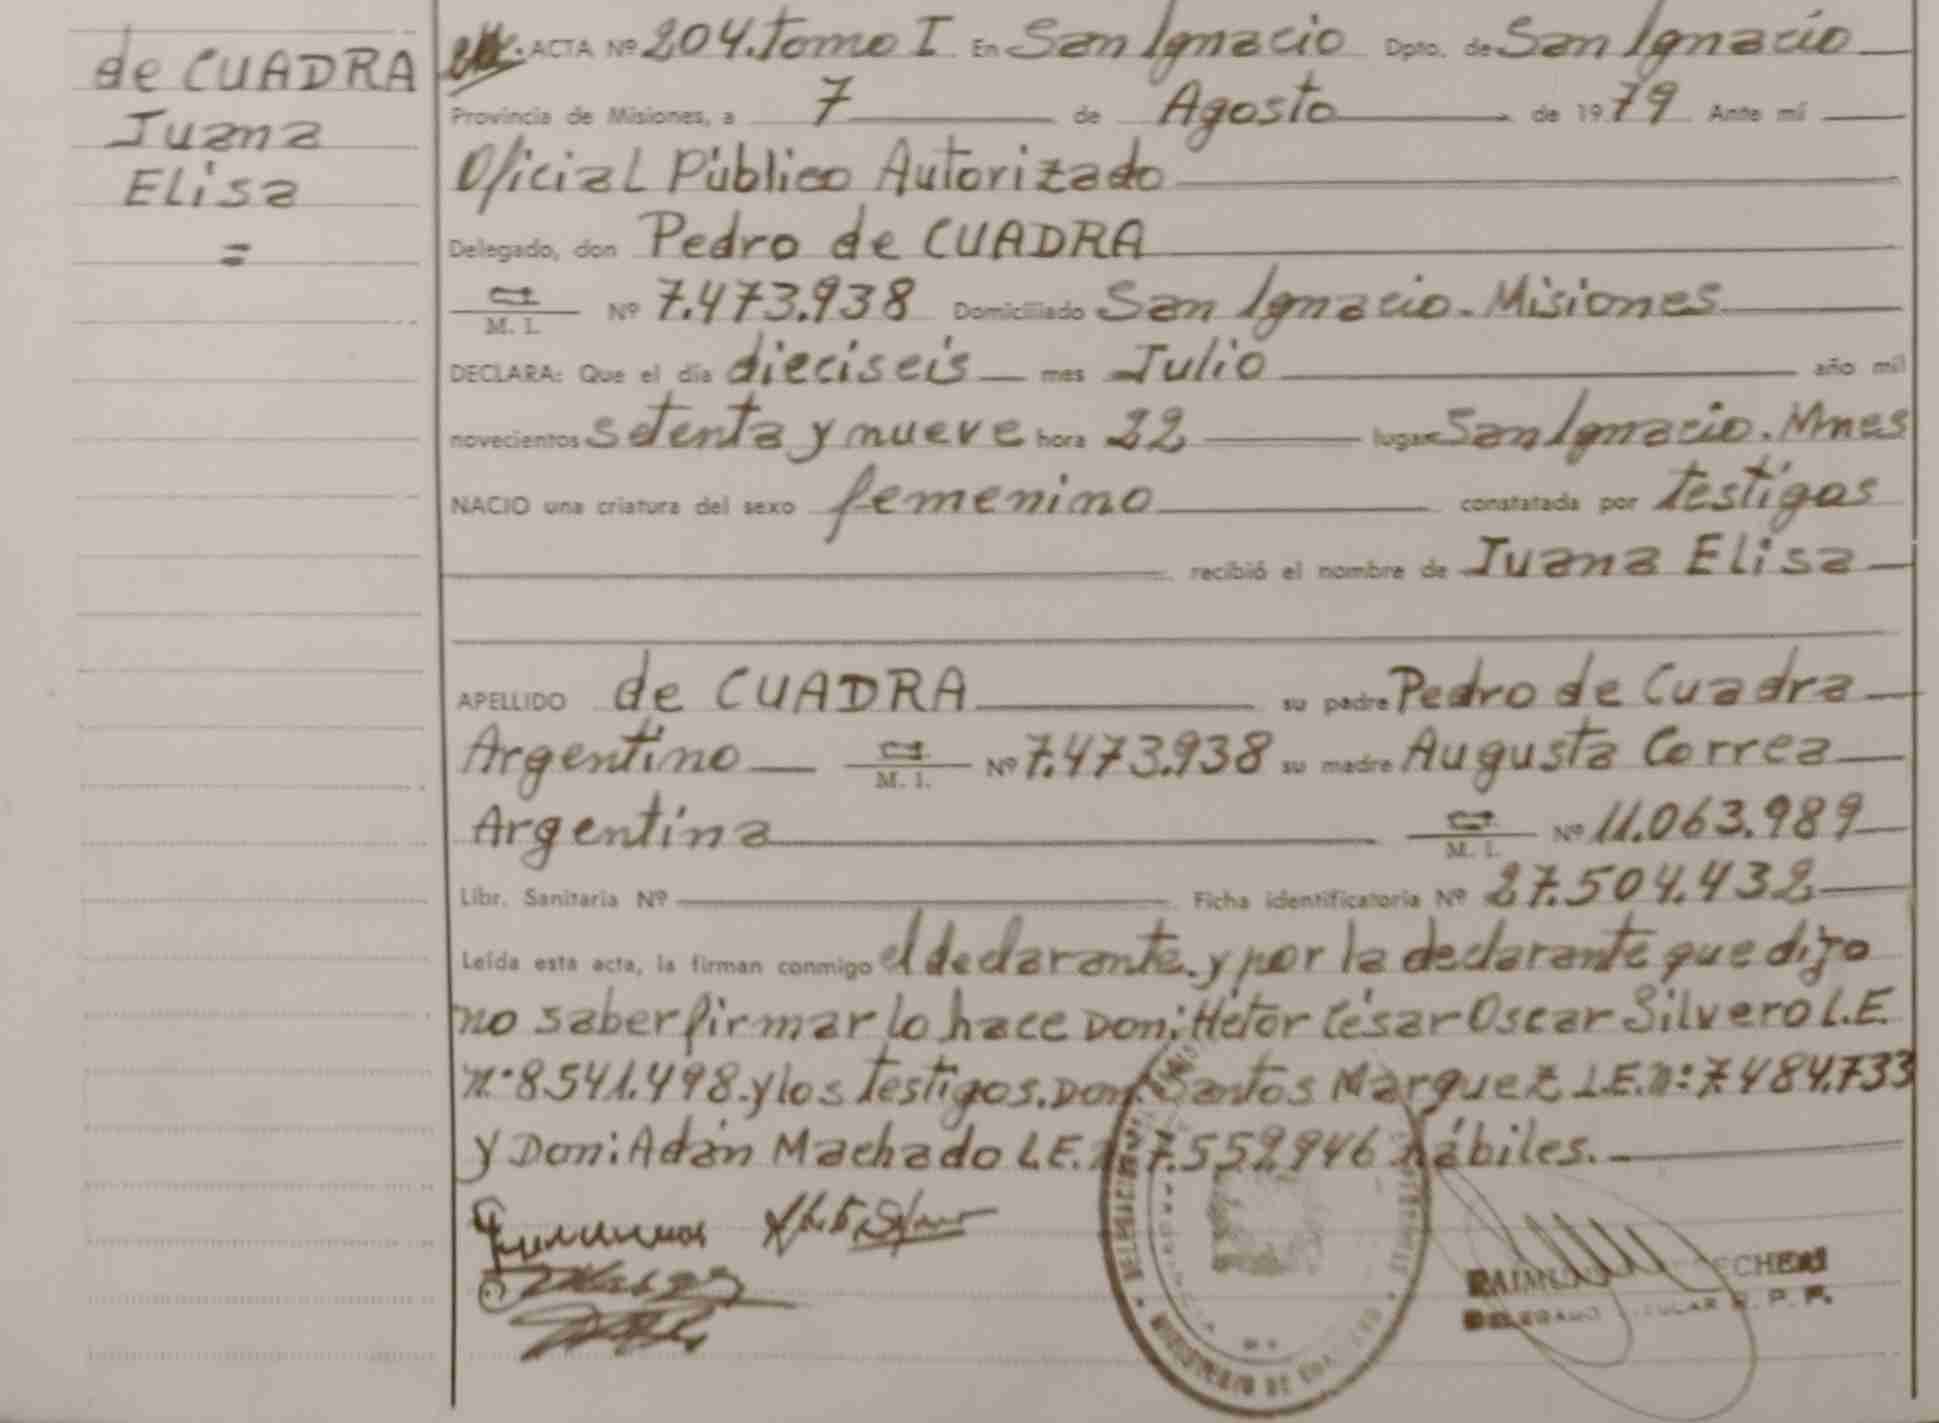 de CUADRA
Juana
Elisa
=
ACTA Nº 204. Tomo I En San Ignacio Dpto. de San Ignacio
Provincia de Misiones, a 7 de Agosto de 1979 Ante mí
Oficial Público Autorizado
Delegado, don Pedro de CUADRA
M. I. Nº 7.473.938 Domiciliado San Ignacio. Misiones
DECLARA: Que el día dieciseis mes Julio año mil
novecientos setenta y nueve hora 22 lugar San Ignacio. Mnes
NACIO una criatura del sexo femenino constatada por testigos
recibió el nombre de Juana Elisa
APELLIDO de CUADRA su padre Pedro de Cuadra
Argentino M. I. Nº 7.473.938 su madre Augusta Correa
Argentina M. I. Nº 11.063.989
Libr. Sanitaria Nº Ficha identificatoria Nº 27.504.432
Leída esta acta, la firman conmigo el declarante. y por la declarante que dijo
no saber firmar lo hace Don: Hétor César Oscar Silvero L.E.
n.º 8541.498. y los testigos. Don: Santos Marquez L.E. n: 7.484.733
y Don: Adán Machado L.E. 7.552.946 hábiles.
REGISTRO DE
DELEGADO TITULAR R. P. P.